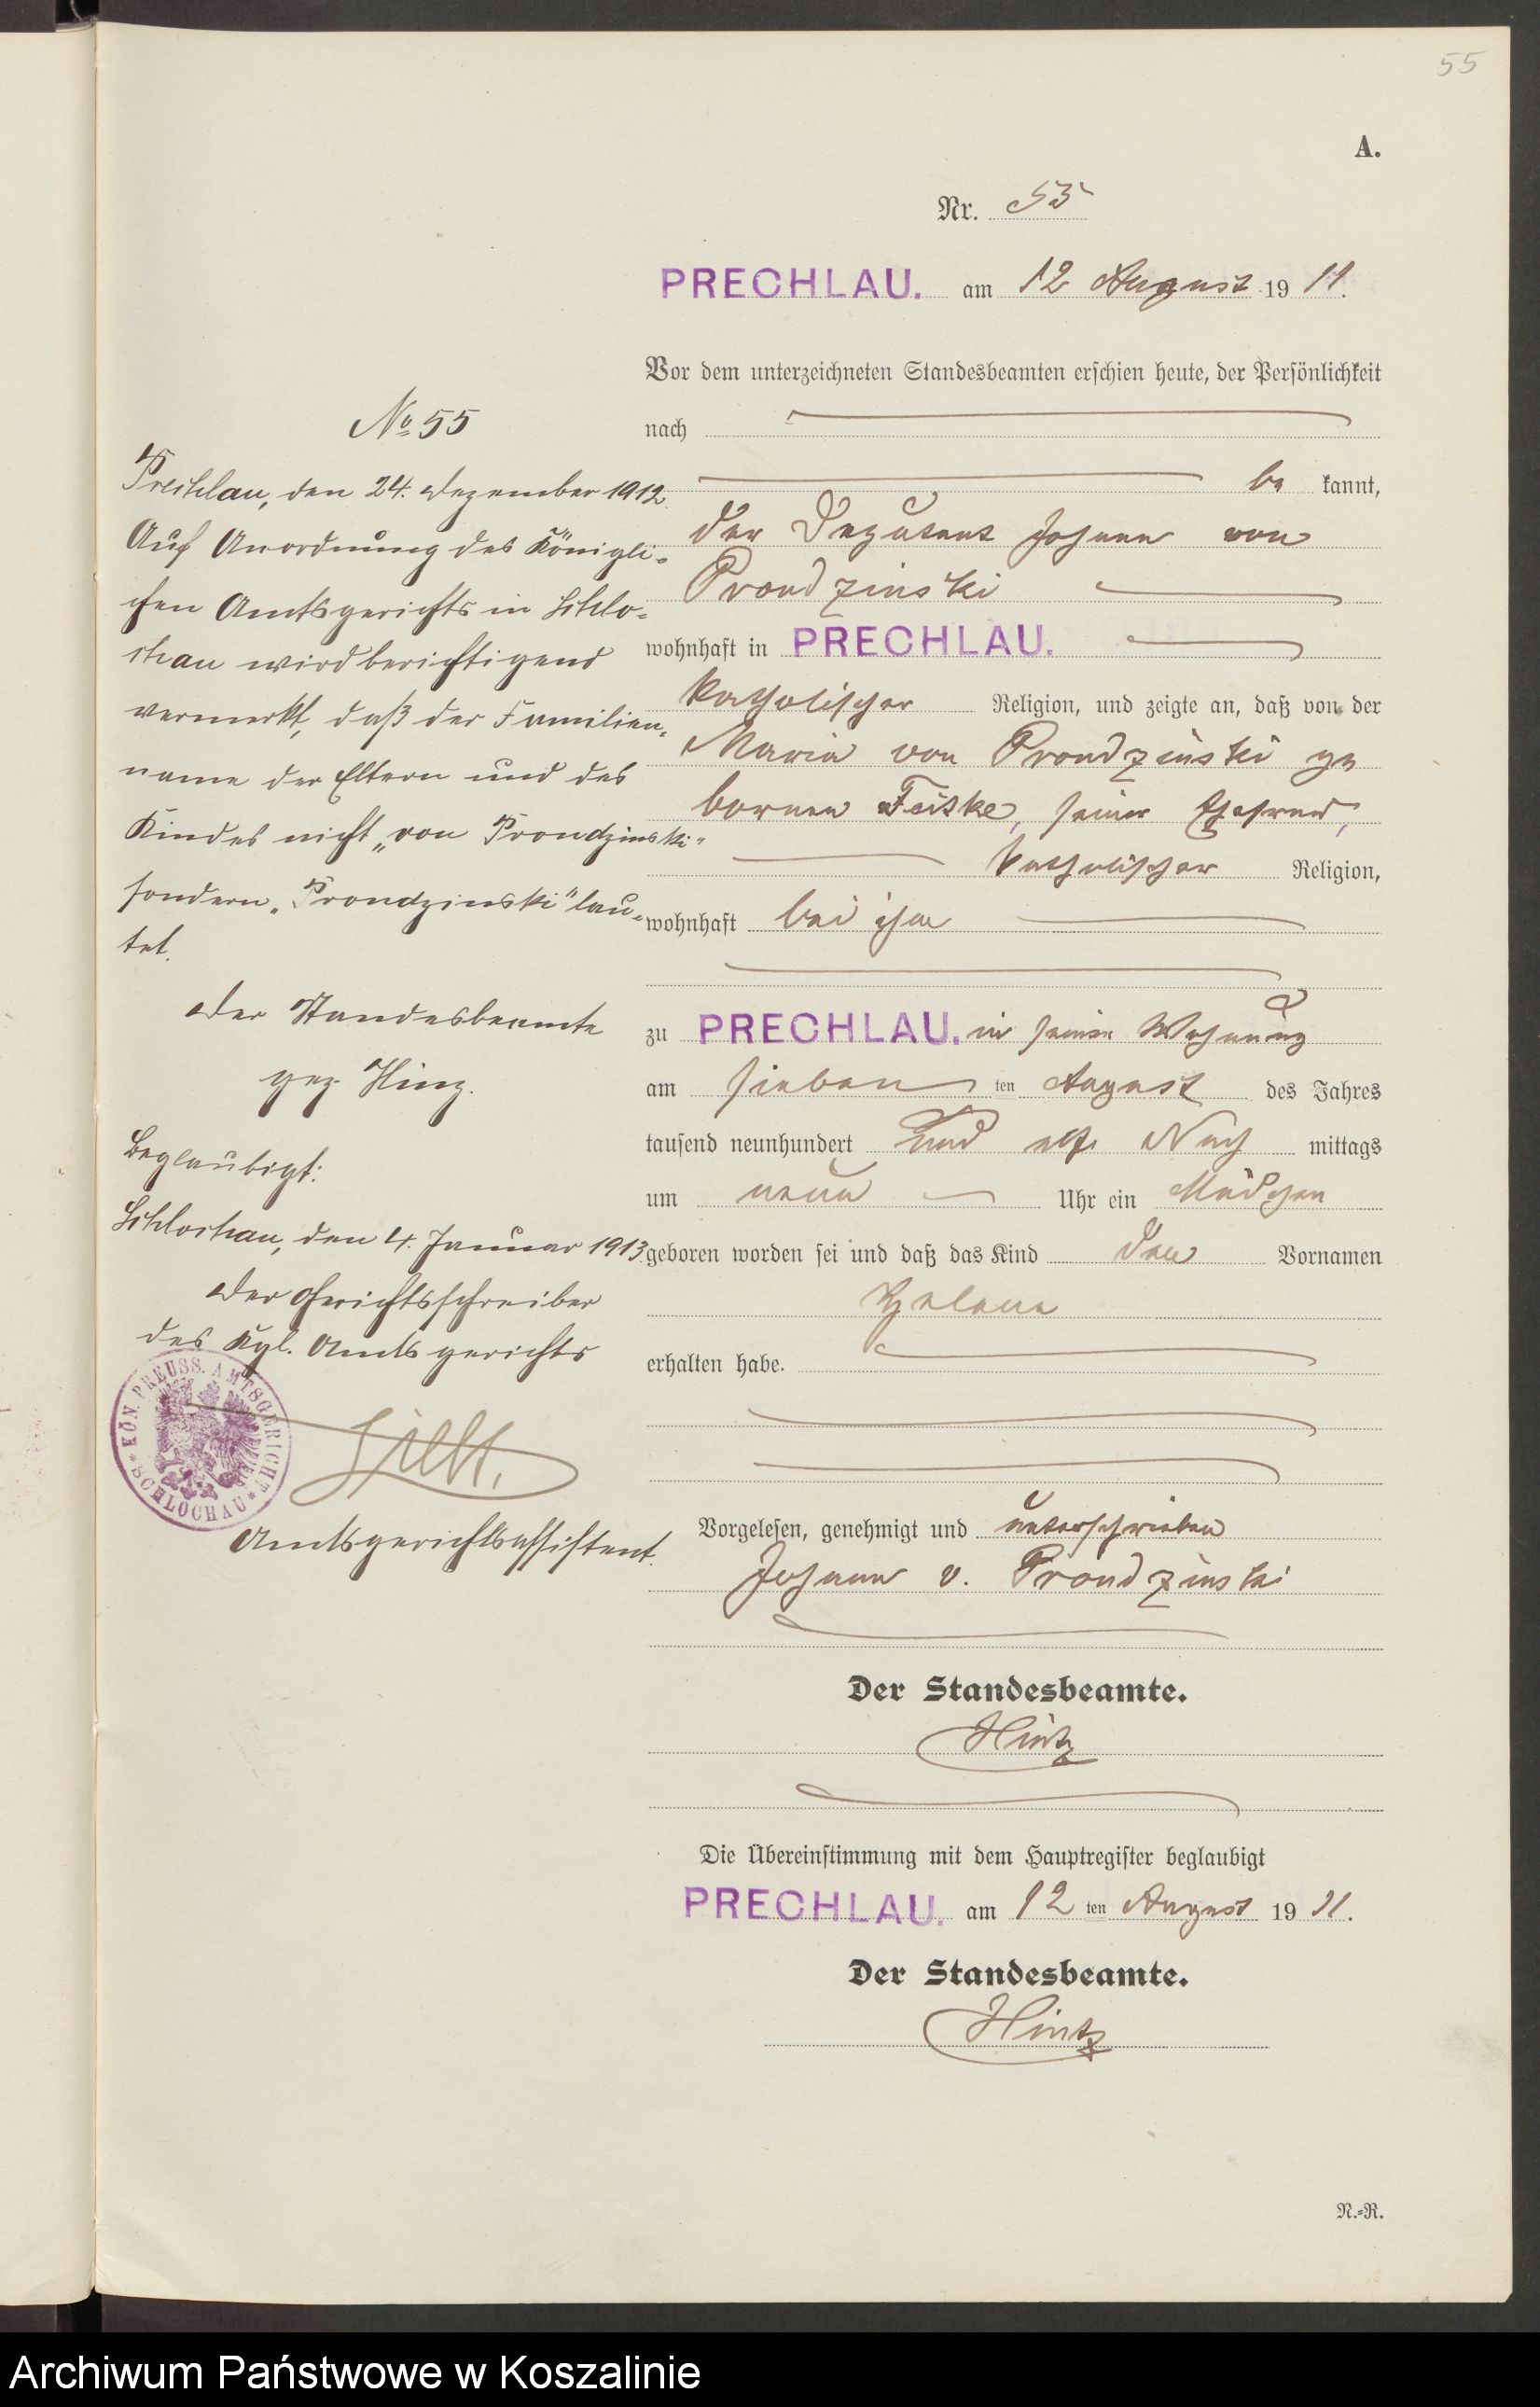 55
A.
Nr. 55
PRECHLAU. am 12 August 1911.
Vor dem unterzeichneten Standesbeamten erschien heute, der Persönlichkeit
nach
be kannt,
der Deputant Johann von
Prondzinski
wohnhaft in PRECHLAU.
katholischer Religion, und zeigte an, daß von der
Maria von Prondzinski ge
bornen Feiske, seiner Ehefrau,
katholischer Religion,
wohnhaft bei ihm
zu PRECHLAU. in seiner Wohnung
am sieben ten August des Jahres
tausend neunhundert und elf Nach mittags
um neun Uhr ein Mädchen
geboren worden sei und daß das Kind den Vornamen
Helene
erhalten habe.
Vorgelesen, genehmigt und unterschrieben
Johann v. Prondzinski
Der Standesbeamte.
Hintz
Die Übereinstimmung mit dem Hauptregister beglaubigt
PRECHLAU. am 12 ten August 1911.
Der Standesbeamte.
Hintz
N.=R.
No 55
Prechlau, den 24. Dezember 1912.
Auf Anordnung des Königli=
chen Amtsgerichts in Schlo=
chau wird berichtigend
vermerkt, daß der Familien=
name der Eltern und des
Kindes nicht „von Prondzinski"
sondern „Prondzinski" lau=
tet.
Der Standesbeamte
gez. Hinz.
Beglaubigt:
Schlochau, den 4. Januar 1913.
Der Gerichtsschreiber
des Kgl. Amtsgerichts
KÖN. PREUSS. AMTSGERICHT
SCHLOCHAU
Amtsgerichtsassistent.
Archiwum Państwowe w Koszalinie